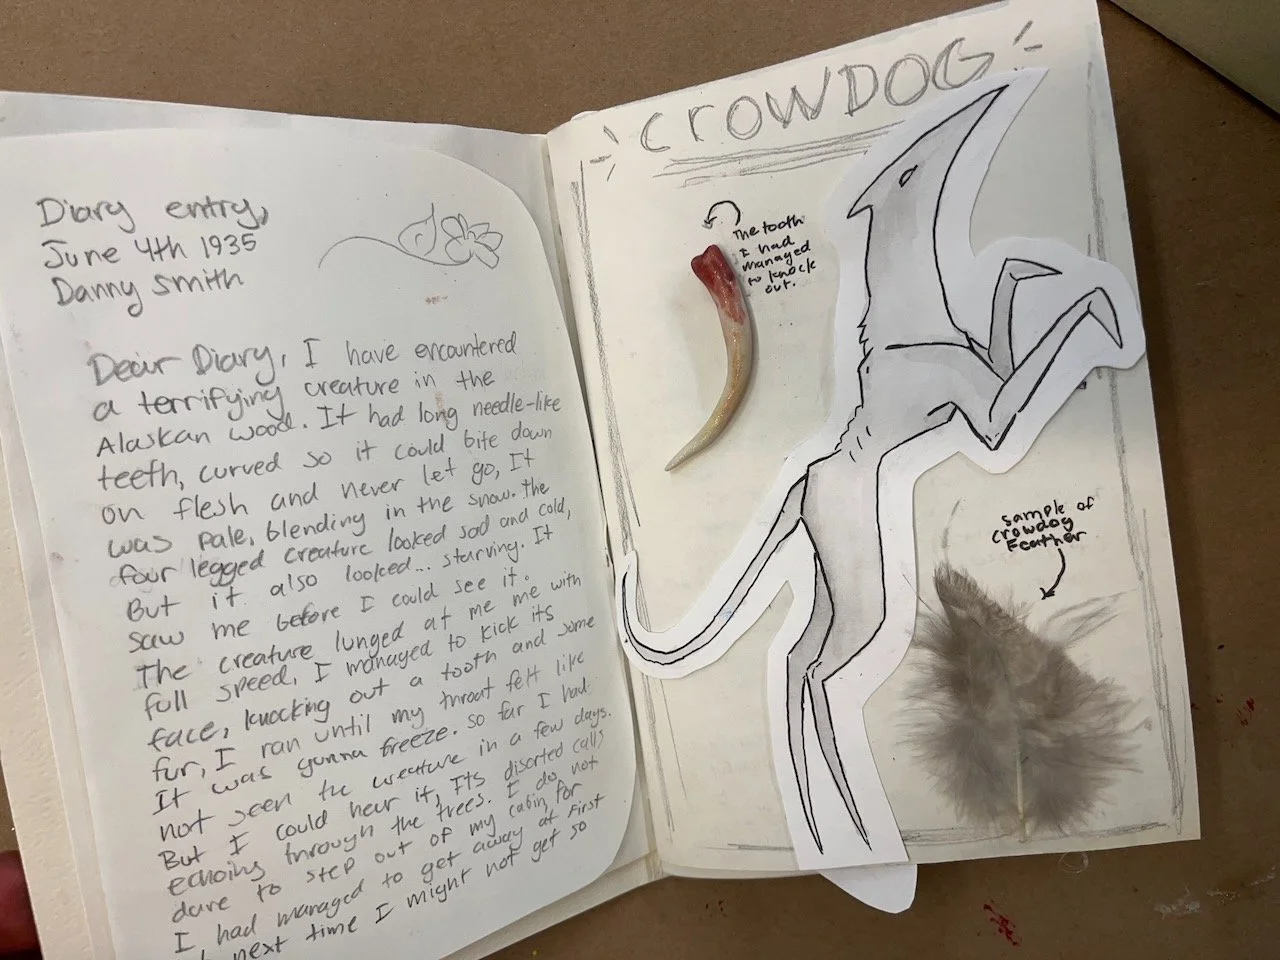 Diary entry,
June 4th 1935
Danny Smith
Dear Diary, I have encountered
a terrifying creature in the
Alaskan wood. It had long needle-like
teeth, curved so it could bite down
on flesh and never let go, It
was pale, blending in the snow. The
four legged creature looked sad and cold,
But it also looked... starving. It
saw me before I could see it.
The creature lunged at me me with
full speed, I managed to kick its
face, knocking out a tooth and some
fur, I ran until my throat felt like
It was gunna freeze. So far I had
not seen the creature in a few days.
But I could hear it, Its discorted calls
echoing through the trees. I do not
dare to step out of my cabin, for
I had managed to get away at first
next time I might not get so
CROWDOG
The tooth
I had
managed
to knock
out.
sample of
crowdog
Feather